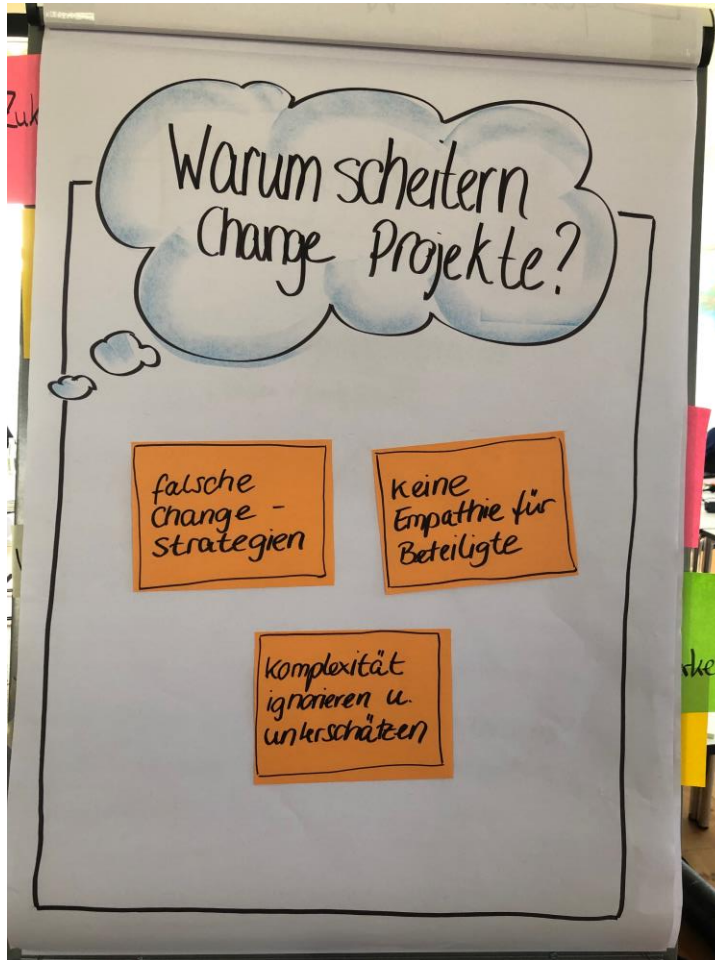 Warum scheitern
Change Projekte?
falsche
Change -
strategien
Keine
Empathie für
Beteiligte
Komplexität
ignorieren u.
unterschätzen